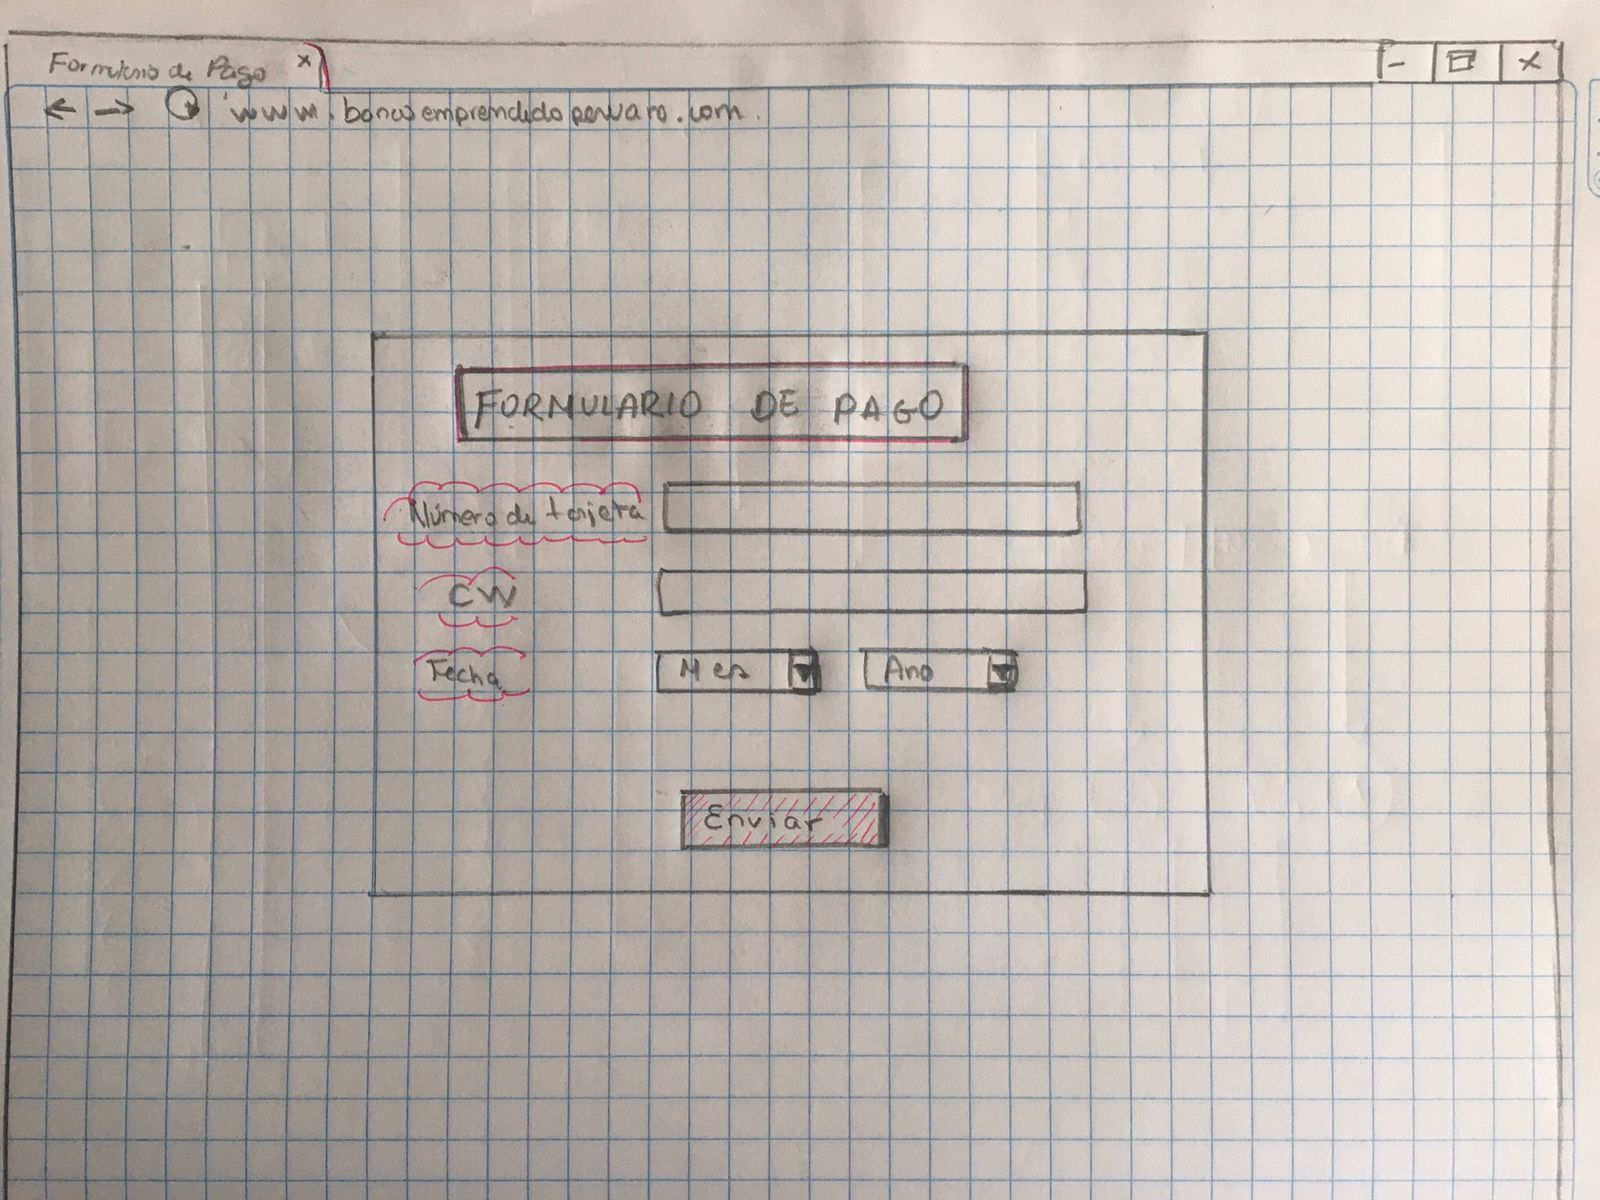 Formulario de Pago x
www.bancoemprendidopewaro.com.
FORMULARIO DE PAGO
Número de tarjeta
CVV
Fecha Mes Ano
Enviar